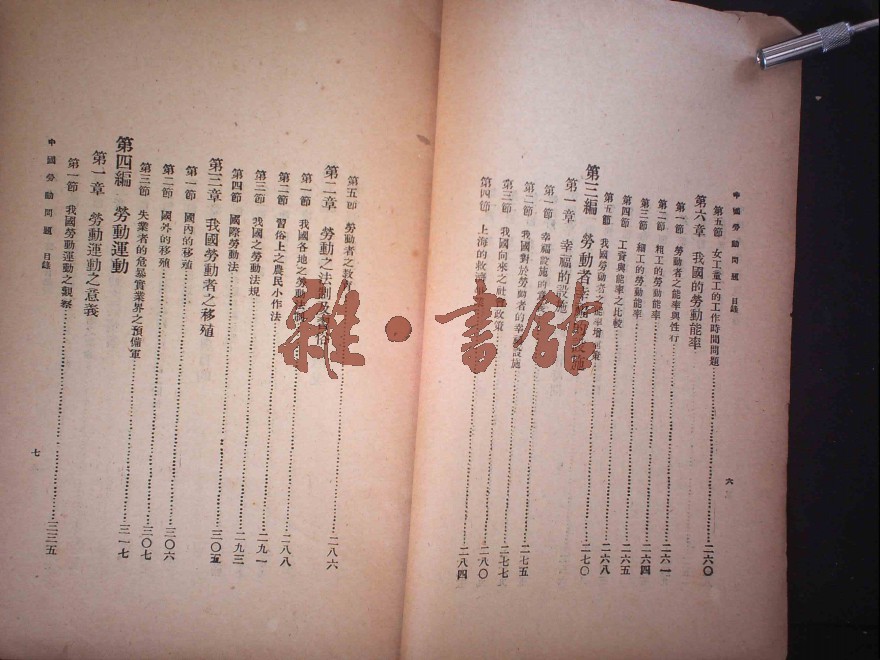 中國勞動問題 目錄
第五節 女工童工的工作時間問題……二六〇
第六章 我國的勞動能率
第一節 勞動者之能率與性行……二六一
第二節 粗工的勞動能率……二六四
第三節 細工的勞動能率……二六五
第四節 工資與能率之比較……二六八
第五節 我國勞動者之能率增
第三編 勞動者幸福的設施……二七〇
第一章 幸福的設施
第一節 幸福設施的意
第二節 我國對於勞動者的幸福設施……二七五
第三節 我國向來之社會政策……二七七
第四節 上海的救濟……二八〇
二八四
六
第五節 勞動者之教育……二八六
第二章 勞動之法制及習慣
第一節 我國各地之勞動法制
第二節 習俗上之農民小作法……二八八
第三節 我國之勞動法規……二九一
第四節 國際勞動法……二九三
第三章 我國勞動者之移殖……三〇五
第一節 國內的移殖
第二節 國外的移殖……三〇六
第三節 失業者的危暴實業界之預備軍……三〇七
第四編 勞動運動……三一七
第一章 勞動運動之意義
第一節 我國勞動運動之觀察……三三五
中國勞動問題 目錄
七
雜·書館